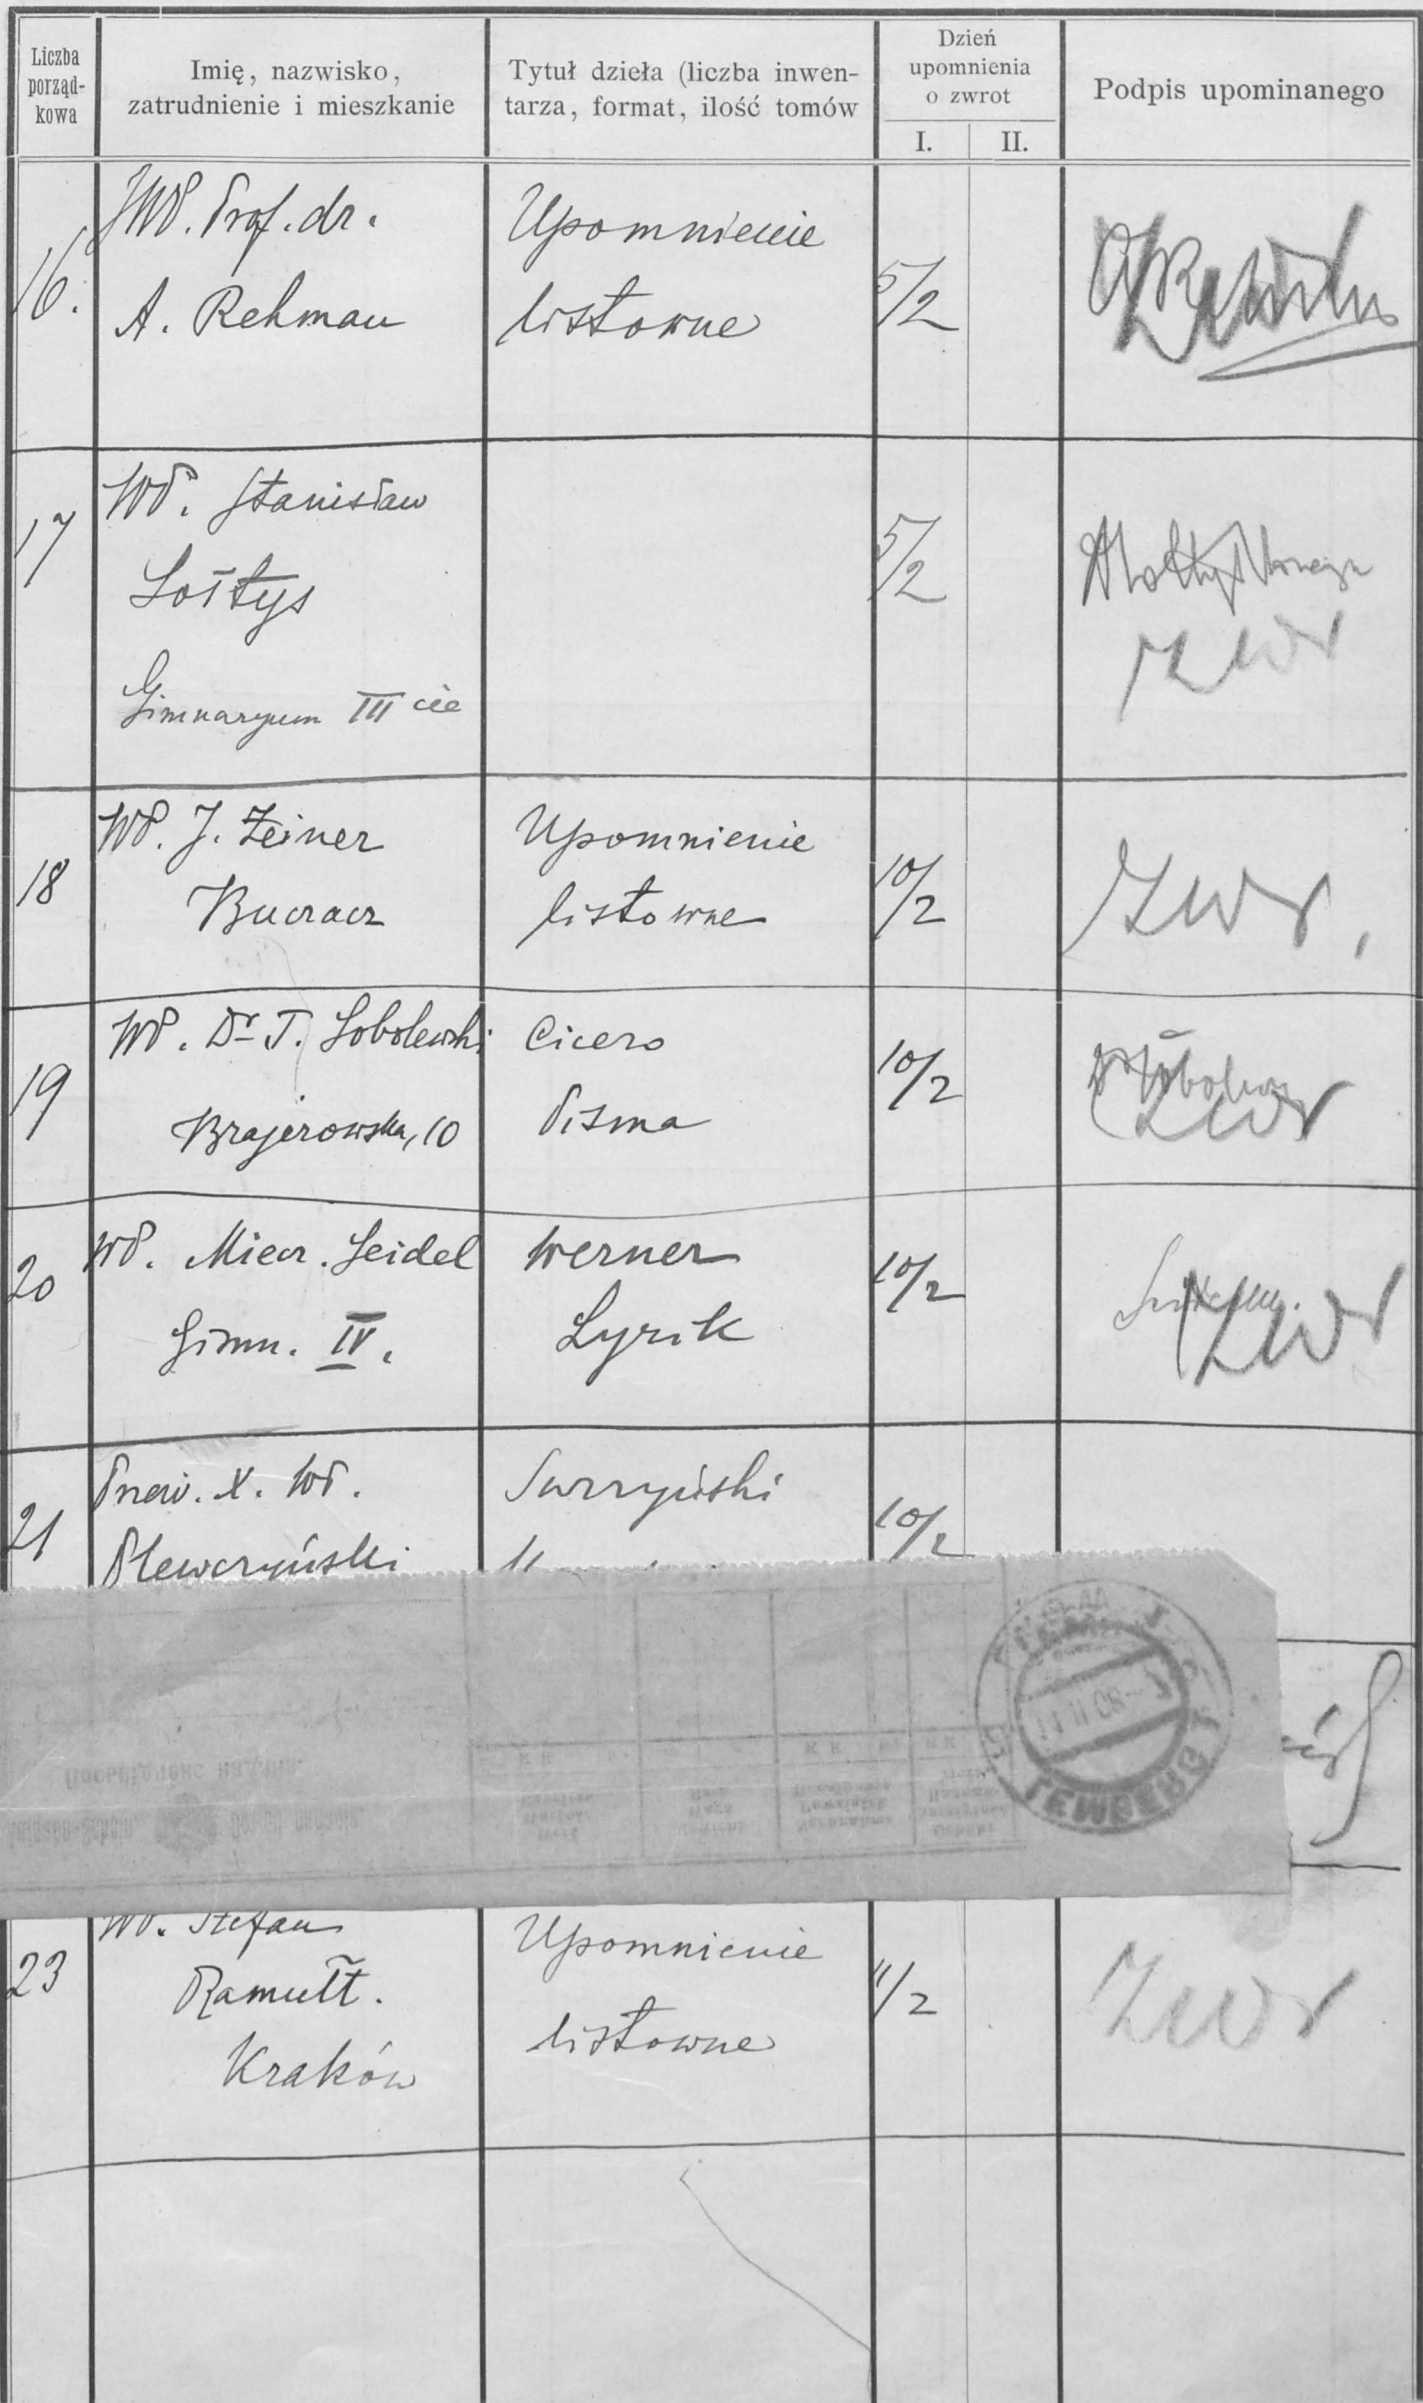 Liczba porządkowa
Imię, nazwisko, zatrudnienie i mieszkanie
Tytuł dzieła (liczba inwentarza, format, ilość tomów
Dzień upomnienia o zwrot
I. II.
Podpis upominanego
16.
JWP. Prof. dr.
A. Rehman
Upomnienie
listowne
5/2
17
WP. Stanisław
Sołtys
Gimnazyum III cie
5/2
Zwr
18
WP. J. Zeiner
Buczacz
Upomnienie
listowne
10/2
Zwr,
19
WP. Dr T. Sobolewski
Brajerowska, 10
Cicero
Pisma
10/2
Zwr
20
WP. Miecz. Seidel
Gimn. IV.
Werner
Lyrik
10/2
Zwr
21
Przew. X. WP.
Plewczyński
Surzyński
10/2
LEMBERG
11 II 08
23
WP. Stefan
Ramułt.
Kraków
Upomnienie
listowne
11/2
Zwr